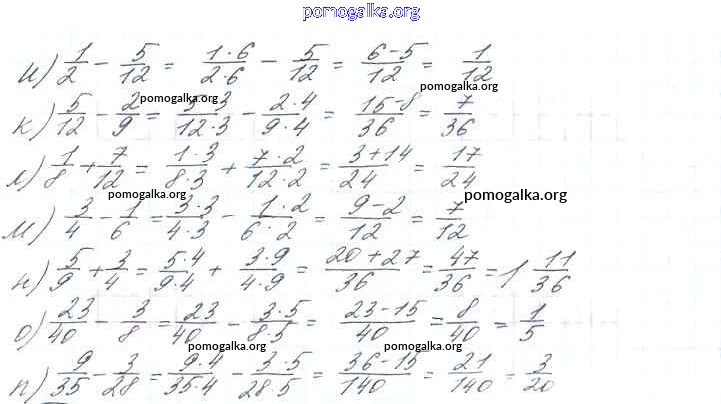 pomogalka.org
и) 1/2 - 5/12 = 1·6/2·6 - 5/12 = 6-5/12 = 1/12
pomogalka.org
pomogalka.org
к) 5/12 - 2/9 = 5·3/12·3 - 2·4/9·4 = 15-8/36 = 7/36
л) 1/8 + 7/12 = 1·3/8·3 + 7·2/12·2 = 3+14/24 = 17/24
pomogalka.org
pomogalka.org
м) 3/4 - 1/6 = 3·3/4·3 - 1·2/6·2 = 9-2/12 = 7/12
н) 5/9 + 3/4 = 5·4/9·4 + 3·9/4·9 = 20+27/36 = 47/36 = 1 11/36
pomogalka.org
о) 23/40 - 3/8 = 23/40 - 3·5/8·5 = 23-15/40 = 8/40 = 1/5
pomogalka.org
pomogalka.org
п) 9/35 - 3/28 = 9·4/35·4 - 3·5/28·5 = 36-15/140 = 21/140 - 3/20